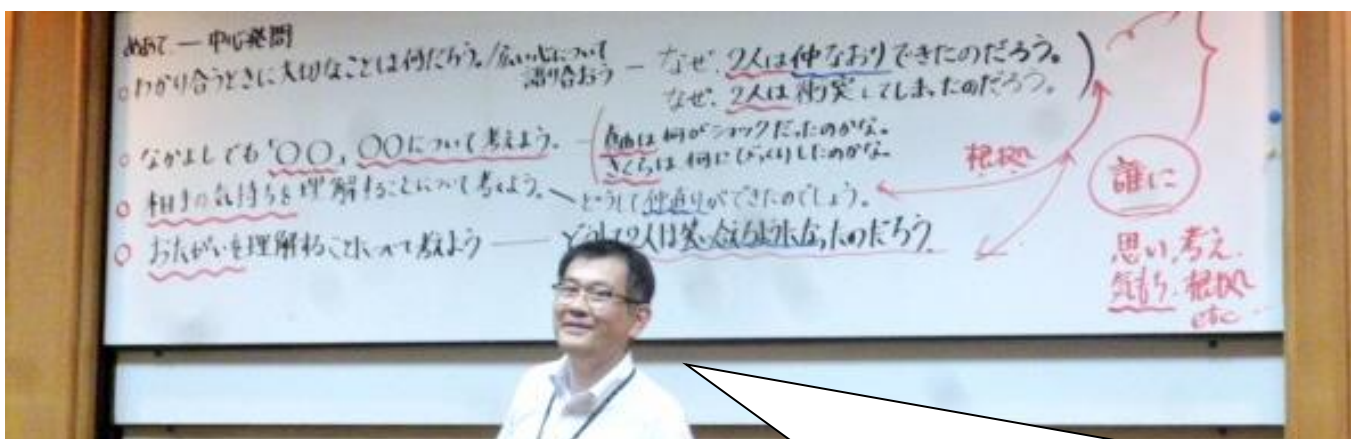 めあて ― 中心発問
○わかり合うときに大切なことは何だろう。/広い心について語り合おう ― なぜ、2人は仲なおりできたのだろう。
なぜ、2人は衝突してしまったのだろう。
○なかよしでも「○○」、○○について考えよう。
は何がショックだったのかな。
さくらは何にびっくりしたのかな。
○相手の気持ちを理解することについて考えよう。
どうして仲直りができたのでしょう。
○おたがいを理解することについて考えよう ― どうして2人は笑い合えるようになったのだろう。
根拠
誰に
思い、考え、
気もち、根拠
etc